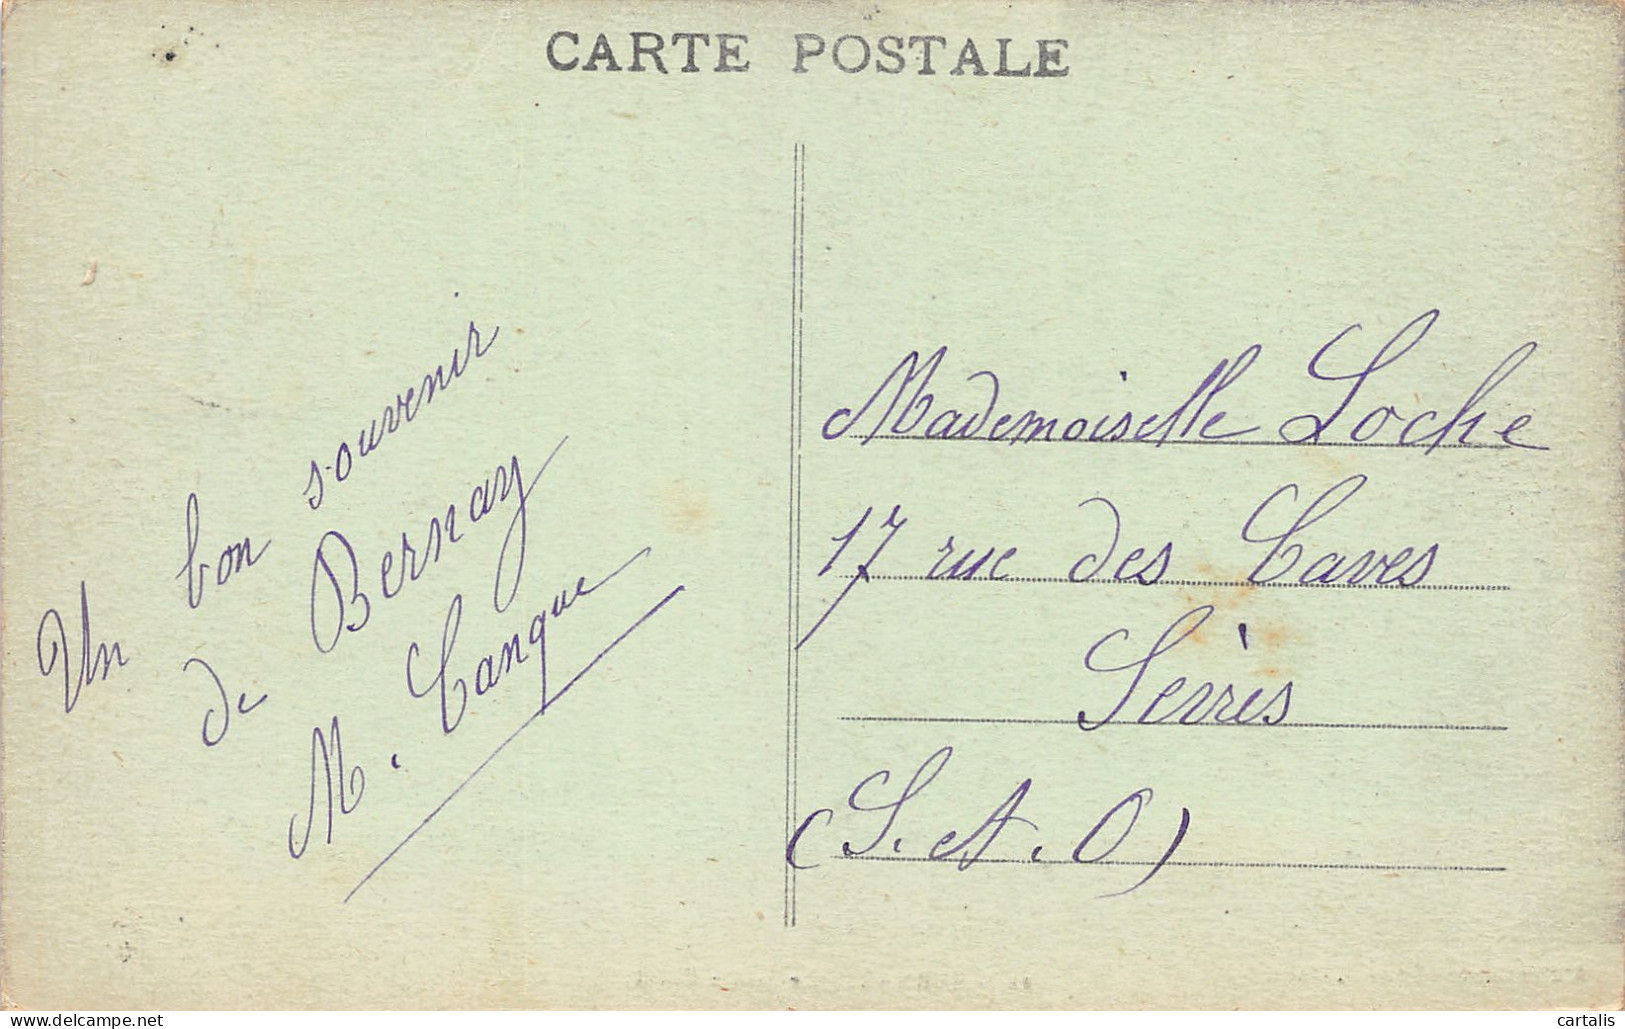 CARTE POSTALE
Un bon souvenir
de Bernay
M. Canque
Mademoiselle Loche
17 rue des Caves
Sèvres
(S. et. O)
www.delcampe.net
cartalis